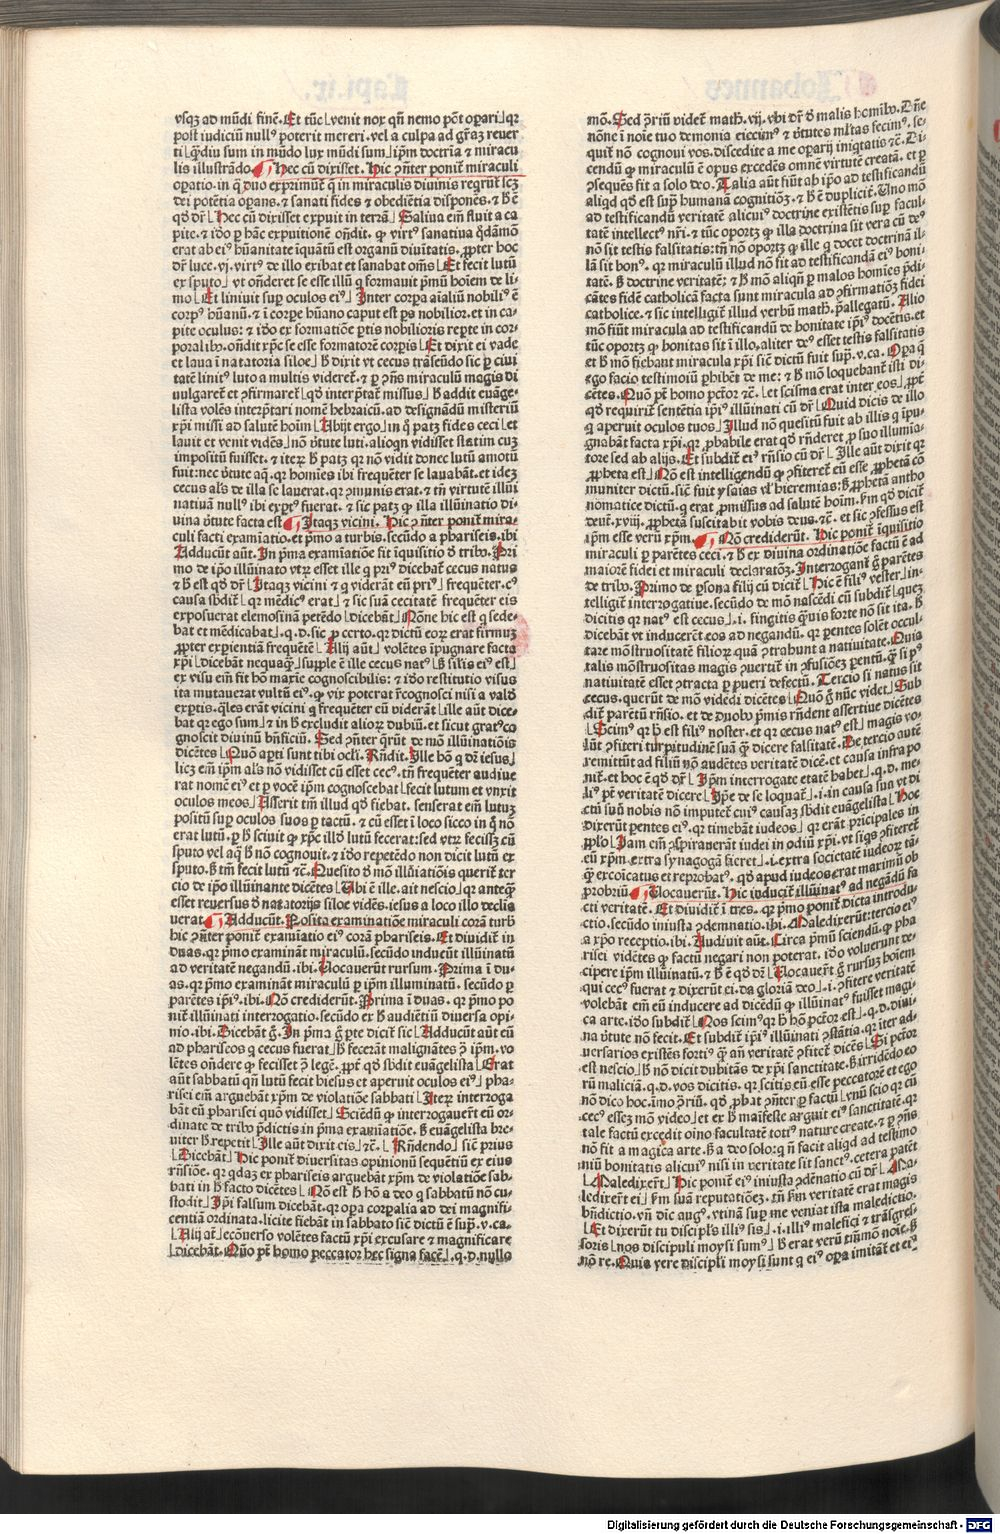 vsqꝫ ad mūdi finē. Et tūc venit nox qn̄ nemo pōt opari qꝛ
post iudiciū nullꝰ poterit mereri. vel a culpa ad gr̄aꝫ reuer
ti qdiu sum in mūdo lux mūdi sum ip̄m doctrīa ⁊ miracu
lis illustrādo. Hec cū dixisset. Hic ꝯn̄ter ponit̄ miraculi
opatio. in q̄ duo exprimūt̄ q̄ in miraculis diuinis reqrūt̄ scꝫ
dei potētia opans. ⁊ sanati fides ⁊ obediētia disponēs. ⁊ h̄ ē
qḋ dr̄ Hec cū dixisset expuit in terrā Saliua em̄ fluit a ca
pite. ⁊ iḋo ꝑ hāc expuitionē on̄dit̄. ꝙ virtꝰ sanatiua qdāmō
erat ab eiꝰ hūanitate iquātū est organū diuitatis. ꝓpter hoc
dr̄ luce. vj. virtꝰ de illo exibat et sanabat om̄s Et fecit lutū
ex sputo vt on̄deret se esse illū q formauit pmū hoiem de li-
mo Et liniuit suꝑ oculos eiꝰ Inter corpa aīaliū nobiliꝰ ē
corpꝰ hūanū. ⁊ ī corpe hūano caput est ps nobilior. et in ca-
pite oculus: ⁊ iḋo ex formatiōe ptis nobilioris repte in cor-
poralibꝰ. on̄dit xp̄c se esse formatorē corpis Et dixit ei vade
et laua ī natatoria siloe h̄ dixit vt cecus trāseūdo sic ꝑ ciui
tatē linitꝰ luto a multis videret̄. ⁊ ꝑ ꝯn̄s miraculū magis di
uulgaret̄ et ꝯfirmaret̄ qḋ interptat̄ missus h̄ addit euāge-
lista volēs interptari nomē hebraicū. ad designādū misteriū
xp̄i missi ad salutē hoim Abijt ergo in q̄ patꝫ fides ceci et
lauit et venit vidēs nō v̓tute luti. alioqn vidisset statim cuꝫ
impositū fuisset. ⁊ iteꝝ h̄ patꝫ qꝛ nō vidit donec lutū amotū
fuit: nec v̓tute aq̄. qꝛ homies ibi frequēter se lauabāt. et ideꝫ
cecus als̄ de illa se lauerat. qꝛ ꝯmunis erat. ⁊ tn̄ virtutē illūi
natiuā nullꝰ ibi exptꝰ fuerat. ⁊ sic patꝫ ꝙ illa illūinatio di-
uina v̓tute facta est Itaqꝫ vicini. Hic ꝯn̄ter ponit̄ mira-
culi facti examīatio. et pmo a turbis. secūdo a phariseis. ibi
Adducūt aūt. In pma examīatiōe fit iquisitio ḋ tribꝰ. Pri
mo de ip̄o illūinato vtꝝ esset ille q pri dicebat̄ cecus natus
⁊ h̄ est qḋ dr̄ Itaqꝫ vicini ⁊ q viderāt eū priꝰ frequēter. cꝰ
causa sb̄dit̄ qꝛ mēdicꝰ erat ⁊ sic suā cecitatē frequēter eis
exposuerat elemosinā petēdo dicebāt Nōne hic est q sede-
bat et mēdicabat. q. d. sic ꝓ certo. qꝛ dictū eoꝝ erat firmuꝫ
ꝓpter expientiā frequētē Alij aūt volētes ipugnare facta
xp̄i dicebāt nequaq̄ supple ē ille cecus natꝰ h̄ silis eiꝰ est
ex visu em̄ fit hō maxīe cognoscibilis: ⁊ iḋo restitutio visus
ita mutauerat vultū eiꝰ. ꝙ vix poterat r̄cognosci nisi a valḋ
exptis. q̄les erāt vicini q frequēter eū viderāt ille aūt dice-
bat qꝛ ego sum ⁊ in h̄ excludit alioꝝ dubiū. et sicut gratꝰ co
gnoscit diuinū bn̄ficiū. Sed ꝯn̄ter qr̄ūt de mō illūinatiōis
dicētes Quō apti sunt tibi ocli. Rn̄dit. Ille hō q dr̄ iesus
licꝫ em̄ ip̄m als̄ nō vidisset cū esset cecꝰ. tn̄ frequēter audiue
rat nomē eiꝰ et ꝑ vocē ip̄m cognoscebat fecit lutum et vnxit
oculos meos Asserit tm̄ illud qḋ fiebat. senserat em̄ lutuꝫ
positū suꝑ oculos suos ꝑ tactū. ⁊ cū esset ī loco sicco in q̄ nō
erat lutū. ꝑ h̄ sciuit ꝙ xp̄c illḋ lutū fecerat: sed vtꝝ fecissꝫ cū
sputo vel aq̄ h̄ nō cognouit. ⁊ iḋo repetēdo non dicit lutū ex
sputo. h̄ tm̄ fecit lutū ⁊c̄. Quesito h̄ mō illūiatiōis querit̄ ter
cio de ip̄o illūinante dicētes Vbi ē ille. ait nescio qꝛ anteq̄
esset reuersus ḋ natatorijs siloe vidēs. iesus a loco illo decli
uerat. Adducūt. Posita examinatiōe miraculi corā turb̄
hic ꝯn̄ter ponit̄ examiatio eiꝰ corā phariseis. Et diuidit̄ in
duas. qꝛ pmo examināt miraculū. secūdo inducūt illūinatū
ad veritatē negandū. ibi. Vocauerūt rursum. Prima ī du-
as. qꝛ pmo examināt miraculū ꝑ ip̄m illuminatū. secūdo ꝑ
parētes ip̄iꝰ. ibi. Nō crediderūt. Prima ī duas. qꝛ pmo po
nit̄ illūinati interrogatio. secūdo ex h̄ audiētiū diuersa opi-
nio. ibi. Dicebāt g̊. In pma g̊ pte dicit̄ sic Adducūt aūt eū
ad phariseos q cecus fuerat h̄ fecerāt malignātes ꝯ̄ ip̄m. vo
lētes on̄dere ꝙ fecisset ꝯ̄ legē. ꝓpt̄ qḋ sb̄dit euāgelista Erat
aūt sabbatū qn̄ lutū fecit hiesus et aperuit oculos eiꝰ pha-
risei em̄ arguebāt xp̄m de violatiōe sabbati Iteꝝ interroga
bāt eū pharisei quō vidisset Sciēdū ꝙ interrogauer̄t eū or-
dinate de tribꝰ pdictis in pma examīatiōe. h̄ euāgelista bre-
uiter h̄ repetit Ille aūt dixit eis ⁊c̄. Rn̄dendo sic prius
Dicebāt Hic ponit̄ diuersitas opinionū sequētiū ex eius
rn̄siōe. qꝛ qdaꝫ ex phariseis arguebāt xp̄m de violatiōe sab-
bati in h̄ facto dicētes Nō est h̄ hō a deo q sabbatū nō cu-
stodit Ip̄i falsum dicebāt. qꝛ opa corpalia ad dei magnifi-
centiā ordinata. licite fiebāt in sabbato sic̄ dictū ē sup̄. v. ca.
Alij at̄ ecōuerso volētes factū xp̄i excusare ⁊ magnificare
dicebāt. Quō pt̄ homo peccator hec signa facē. q. d. nullo
mō. Sed ꝯ̄riū videt̄ math. vij. vbi dr̄ ḋ malis homibꝰ. Dn̄e
nōne ī noīe tuo demonia eiecimꝰ ⁊ v̓tutes ml̄tas fecimꝰ. se-
quit̄ nō cognoui vos. discedite a me oparij iniqtatis ⁊c̄. Di-
cendū ꝙ miraculū ē opus excedēs omnē virtutē creatā. et ꝑ
ꝯseq̄ns fit a solo deo. Talia aūt fiūt ab ip̄o ad testificandū
aliqd qḋ est suꝑ humanā cognitiōꝫ. ⁊ h̄ ē duplicit̄. Vno mō
ad testificandū veritatē alicuiꝰ doctrine existētis suꝑ facul-
tatē intellectꝰ nr̄i. ⁊ tūc oportꝫ ꝙ illa doctrina sit vera cū deꝰ
nō sit testis falsitatis: tn̄ nō oportꝫ ꝙ ille q docet doctrinā il-
lā sit bonꝰ. qꝛ miraculū illud nō fit ad testificandā eiꝰ boni-
tatē. h̄ doctrine veritatē: ⁊ h̄ mō aliqn̄ ꝑ malos homies pdi-
cātes fidē catholicā facta sunt miracula ad ꝯfirmatiōꝫ fidei
catholice. ⁊ sic intelligit̄ illud verbū math. pallegatū. Alio
mō fiūt miracula ad testificandū de bonitate ip̄iꝰ docētis. et
tūc oportꝫ ꝙ bonitas sit ī illo. aliter deꝰ esset testis falsitatis
et h̄ mō fiebant miracula xp̄i sic̄ dictū fuit sup̄. v. ca. Opa q̄
ego facio testimoiū phibēt de me: ⁊ h̄ mō loquebant̄ isti di-
cētes. Quō pt̄ homo pctor ⁊c̄. et scisma erat inter eos ꝓpt̄
qḋ requirit̄ sentētia ip̄iꝰ illūinati cū dr̄ Quid dicis de illo
q aperuit oculos tuos Illud nō quesitū fuit ab illis q ipu-
gnabāt facta xp̄i. qꝛ ꝓbabile erat qḋ rn̄deret ꝓ suo illumia-
tore sed ab alijs. Et subdit̄ eiꝰ rn̄sio cū dr̄ Ille aūt dixit qꝛ
ꝓpheta est Nō est intelligendū ꝙ ꝯfiteret̄ eū esse ꝓphetā cō
muniter dictū. sic̄ fuit ysaias vl̄ hieremias: h̄ ꝓphetā antho
nomatice dictū. q erat ꝓmissus ad salutē hoim. scḋm qḋ dicit̄
deut̄. xviij. ꝓphetā suscitabit vobis deus. ⁊c̄. et sic ꝯfessus est
ip̄m esse verū xp̄m. Nō crediderūt. Hic ponit̄ iquisitio
miraculi ꝑ parētes ceci. ⁊ h̄ ex diuina ordinatiōe factū ē ad
maiorē fidei et miraculi declaratōꝫ. Interrogant̄ g̊ parētes
de tribꝰ. Primo de psona filij cū dicit̄ Hic ē filiꝰ vester in-
telligit̄ interrogatiue. secūdo de mō nascēdi cū subdit̄ queꝫ
dicitis qꝛ natꝰ est cecus .i. fingitis q̄uis forte nō sit ita. h̄
dicebāt vt inducerēt eos ad negandū. qꝛ pentes solēt occul
tare mōstruositatē filioꝝ quā ꝯtrahunt a natiuitate. Quia
talis mōstruositas magis ꝯuertit̄ in ꝯfusiōeꝫ pentū. q̄ si pꝰ
natiuitatē esset ꝯtracta ꝑ pueri defectū. Tercio si natus sit
cecus. querūt de mō videdi dicētes Quō g̊ nūc videt Sub
dit̄ parētū rn̄sio. et de duobꝰ pmis rn̄dent assertiue dicētes
Scimꝰ qꝛ h̄ est filiꝰ noster. et qꝛ cecus natꝰ est magis vo-
lūt ꝯfiteri turpitudinē suā q̄ dicere falsitatē. De tercio aūtē
remittūt ad filiū nō audētes veritatē dicē. et causa infra po
nit̄. et hoc ē qḋ dr̄ Ip̄m interrogate etatē habet. q. d. me-
liꝰ pt̄ veritatē dicere Ip̄e de se loquat̄ .i. in causa sua vt di
ctū suū nobis nō imputet̄ cuiꝰ causaꝫ sb̄dit euāgelista Hoc
dixerūt pentes eiꝰ. qꝛ timebāt iudeos qꝛ erāt pricipales in
pplo Iam em̄ ꝯspirauerāt iudei in odiū xp̄i. vt siqs ꝯfiteret̄
eū xp̄m. extra synagogā fieret .i. extra societatē iudeoꝝ tā-
q̄ excōicatus et reprobatꝰ. qḋ apud iudeos erat maximū ob
probriū. Vocauerūt. Hic inducit̄ illūinatꝰ ad negādū fa
cti veritatē. Et diuidit̄ ī tres. qꝛ pmo ponit̄ dicta introdu-
ctio. secūdo iniusta ꝯdemnatio. ibi. Maledixerūt: tercio eiꝰ
a xp̄o receptio. ibi. Audiuit aūt. Circa pmū sciendū. ꝙ pha
risei vidētes ꝙ factū negari non poterat. iḋo voluerunt de-
cipere ip̄m illūinatū. ⁊ h̄ ē qḋ dr̄ Vocauer̄t g̊ rursuꝫ hoiem
qui cecꝰ fuerat ⁊ dixerūt ei. da gloriā deo .i. ꝯfitere veritatē
volebāt em̄ eū inducere ad dicēdū ꝙ illūinatꝰ fuisset magi-
ca arte. iḋo subdit̄ Nos scimꝰ qꝛ h̄ hō pctor est. q. d. diui-
na v̓tute nō fecit. Et subdit̄ ip̄iꝰ illūinati ꝯstātia. qꝛ iter ad-
uersarios existēs fortiꝰ q̄ an̄ veritatē ꝯfitet̄ dicēs Si pctor
est nescio h̄ nō dicit dubitās de xp̄i sanctitate. h̄ irridēdo eo
rū maliciā. q. d. vos dicitis. qꝛ scitis eū esse peccatorē et ego
nō dico hoc. imo ꝯ̄riū. qḋ ꝓbat ꝯn̄ter ꝑ factū vnū scio qꝛ cū
cecꝰ esseꝫ mō video et ex h̄ maīfeste arguit eiꝰ sanctitatē. qꝛ
tale factū excedit oīno facultatē totiꝰ nature create. ⁊ ꝑ ꝯn̄s
nō fit a magica arte. h̄ a deo solo: q n̄ facit aliqd ad testimo
niū bonitatis alicuiꝰ nisi in veritate sit sanctꝰ. cetera patēt
Maledixer̄t Hic ponit̄ eiꝰ iniusta ꝯdēnatio cū dr̄ Ma-
ledixer̄t ei scḋm suā reputatiōeꝫ. tn̄ scḋm veritatē erat magis
bn̄dictio. vn̄ dic augꝰ. vtinā suꝑ me veniat ista maledictio.
Et dixerūt tu discipl̄s illiꝰ sis .i. illiꝰ malefici ⁊ trāsgres-
soris nos discipuli moysi sumꝰ h̄ erat verū tm̄mō noīe. h̄
nō re. Quia vere discipl̄i moysi sunt q eiꝰ opa imitāt̄ et eiꝰ
Digitalisierung gefördert durch die Deutsche Forschungsgemeinschaft - DFG